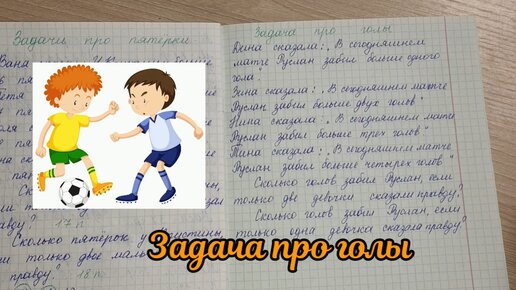 Задачи про пятёрки
Ваня
в пя
Петя
ля с
правду? 17 п
Сколько пятёрок у
ли только двое маль
правду? 18 п
Задача про голы
Дина сказала: „В сегодняшнем
матче Руслан забил больше одного
гола."
Зина сказала: „В сегодняшнем матче
Руслан забил больше двух голов"
Нина сказала: „В сегодняшнем матче
Руслан забил больше трех голов"
Тина сказала: „В сегодняшнем матче
Руслан забил больше четырех голов"
Сколько голов забил Руслан, если
только две девочки сказали правду?
Сколько голов забил Руслан, если
только одна девочка сказала правду?
Задача про голы